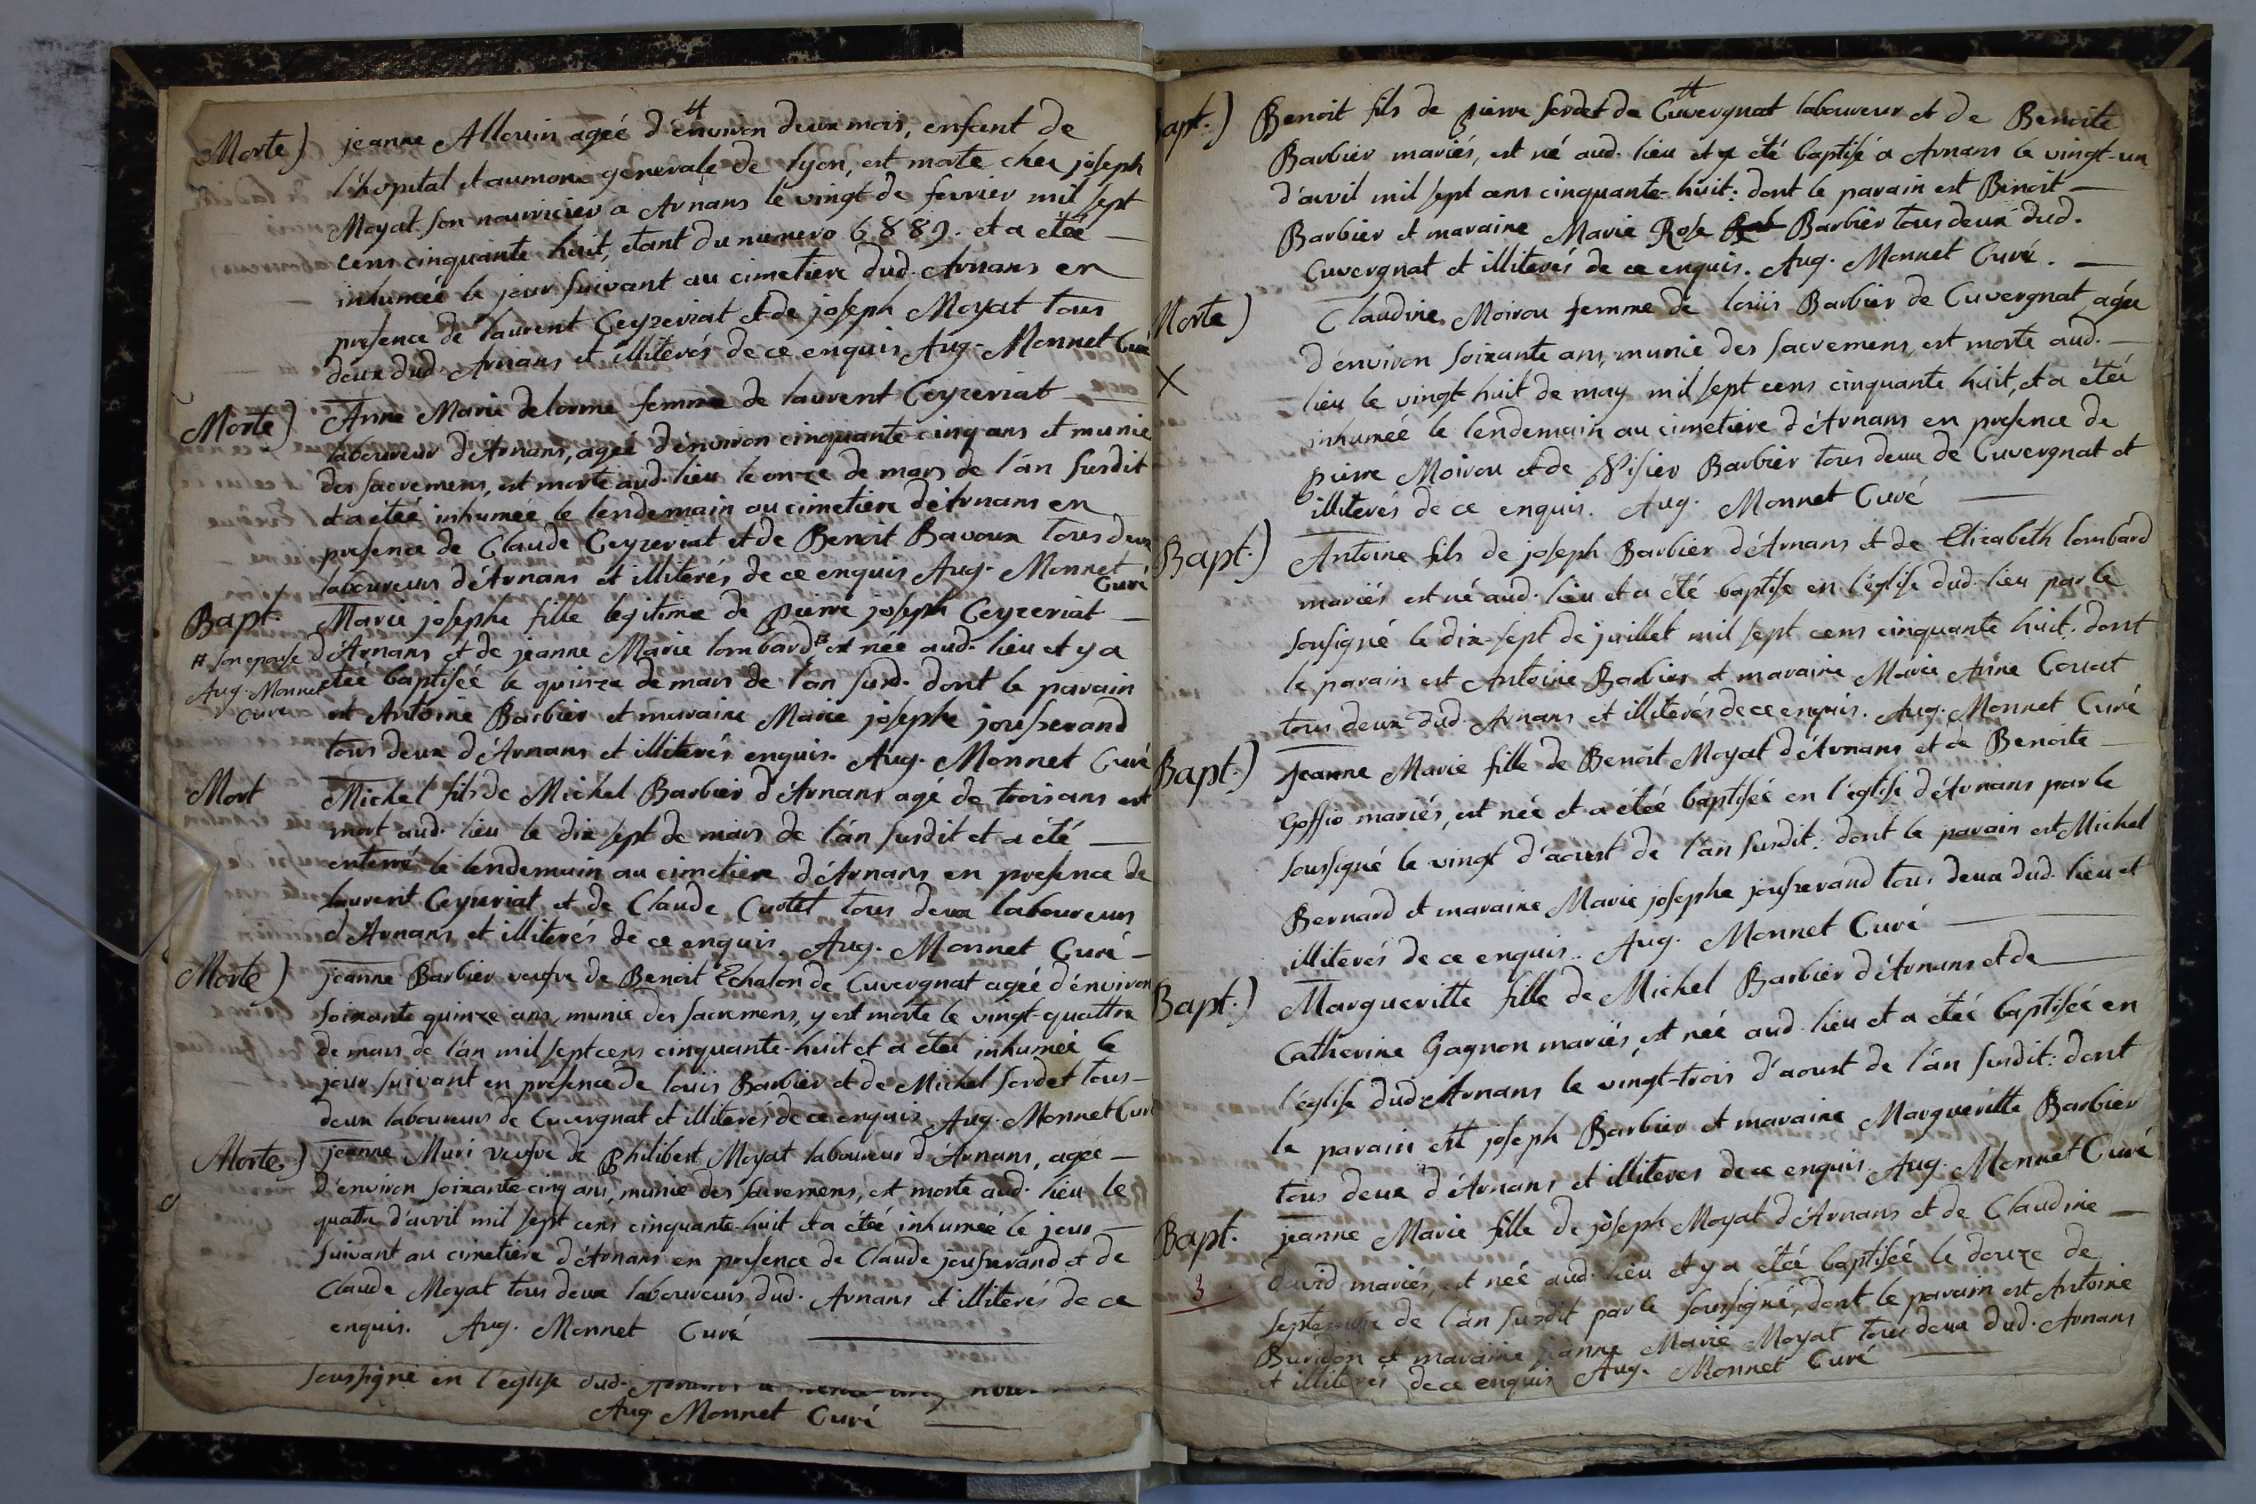 Morte) jeanne Allouin ageé d'environ deux mois, enfant de
l'hopital et aumone generale de lyon, est morte chez joseph
Moyat son nouricier a Arnans le vingt de fevrier mil sept
cens cinquante huit, etant du numero 6889. et a eteé
inhumeé le jour suivant au cimetiere dud. Arnans en
presence de laurent Ceyzeriat et de joseph Moyat tous
deux dud Arnans et illiterés de ce enquis Aug. Monnet Curé
Morte) Anne Marie delorme femme de laurent Ceyzeriat
laboureur d'Arnans, ageé d'environ cinquante cinq ans et munie
des sacremens, est morte aud. lieu le onze de mars de l'an susdit
et a eteé inhumeé le lendemain au cimetiere d'Arnans en
presence de Claude Ceyzeriat et de Benoit Bavoux tous deux
laboureurs d'Arnans et illiterés de ce enquis Aug. Monnet
Curé
Bapt. Marie josephe fille legitime de pierre joseph Ceyzeriat
d'Arnans et de jeanne Marie lombard # est née aud. lieu et y a
# son epouse
Aug. Monnet
curé
eteé baptiseé le quinze de mars de l'an susd. dont le parain
est Antoine Barbier et maraine Marie josephe jousserand
tous deux d'Arnans et illiterés enquis. Aug. Monnet Curé
Mort Michel fils de Michel Barbier d'Arnans agé de trois ans est
mort aud. lieu le dix sept de mars de l'an susdit et a été
enterré le lendemain au cimetiere d'Arnans en presence de
laurent Ceyzeriat et de Claude Curtet tous deux laboureurs
d'Arnans et illiterés de ce enquis. Aug. Monnet Curé
Morte) jeanne Barbier veufve de Benoit Echalon de Cuvergnat ageé d'environ
soixante quinze ans, munie des sacremens, y est morte le vingt-quattre
de mars de l'an mil sept cens cinquante-huit et a eteé inhumeé le
jour suivant en presence de louis Barbier et de Michel Serdet tous
deux laboureurs de Cuvergnat et illiterés de ce enquis Aug. Monnet Curé
Morte) jeanne Muri veufve de philibert Moyat laboureur d'Arnans, ageé
d'environ soixante-cinq ans, munie des sacremens, est morte aud. lieu le
quattre d'avril mil sept cens cinquante-huit et a eteé inhumeé le jour
suivant au cimetiere d'Arnans en presence de Claude jousserand et de
Claude Moyat tous deux laboureurs dud. Arnans et illiterés de ce
enquis. Aug. Monnet Curé
soussigné en l'eglise dud. Arnans
Aug. Monnet Curé
apt.) Benoit fils de pierre serdet de Cuvergnat laboureur et de Benoite
Barbier mariés, est né aud. lieu et a été baptisé a Arnans le vingt-un
d'avril mil sept cens cinquante-huit: dont le parain est Benoit
Barbier et maraine Marie Rose Barbier tous deux dud.
Cuvergnat et illiterés de ce enquis. Aug. Monnet Curé.
Morte) Claudine Moirou femme de louis Barbier de Cuvergnat ageé
X
d'environ soixante ans, munie des sacremens, est morte aud.
lieu le vingt-huit de may mil sept cens cinquante huit, et a eteé
inhumeé le lendemain au cimetiere d'Arnans en presence de
pierre Moirou et de Barbier tous deux de Cuvergnat et
illiterés de ce enquis. Aug. Monnet Curé
Bapt.) Antoine fils de joseph Barbier d'Arnans et de Elizabeth lombard
mariés est né aud. lieu et a été baptisé en l'eglise dud. lieu par le
sousigné le dix-sept de juillet mil sept cens cinquante huit. dont
le parain est Antoine Barbier et maraine Marie Anne Couat
tous deux dud. Arnans et illiterés de ce enquis. Aug. Monnet Curé
Bapt.) Jeanne Marie fille de Benoit Moyat d'Arnans et de Benoite
Goffio mariés, est née et a eteé baptiseé en l'eglise d'Arnans par le
soussigné le vingt d'aoust de l'an susdit: dont le parain est Michel
Bernard et maraine Marie josephe jousserand tous deux dud. lieu et
illiterés de ce enquis.. Aug. Monnet Curé
Bapt.) Margueritte fille de Michel Barbier d'Arnans et de
Catherine Gagnon mariés, est née aud. lieu et a eteé baptiseé en
l'eglise dud. Arnans le vingt-trois d'aoust de l'an susdit: dont
le parain est joseph Barbier et maraine Margueritte Barbier
tous deux d'Arnans et illiterés de ce enquis Aug. Monnet Curé
Bapt. jeanne Marie fille de joseph Moyat d'Arnans et de Claudine
3
david mariés, est née aud. lieu et y a eteé baptiseé le douze de
septembre de l'an susdit par le soussigné, dont le parain est Antoine
Buridon et maraine jeanne Marie Moyat tous deux dud. Arnans
et illiterés de ce enquis Aug. Monnet Curé